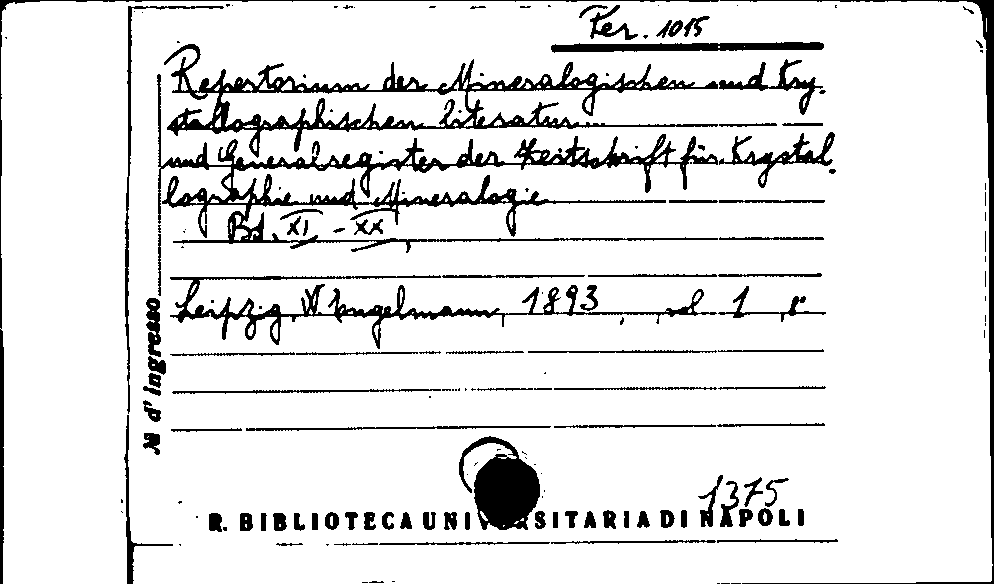 Per. 1015
Repertorium der Mineralogischen und Kry-
stallographischen literatur...
und Generalregister der Zeitschrift für Krystal-
lographie und Mineralogie
Bd. XI - XX,
Leipzig, W Engelmann, 1893, , vol 1 ,
N d'ingresso
1375
R. BIBLIOTECA UNIVERSITARIA DI NAPOLI